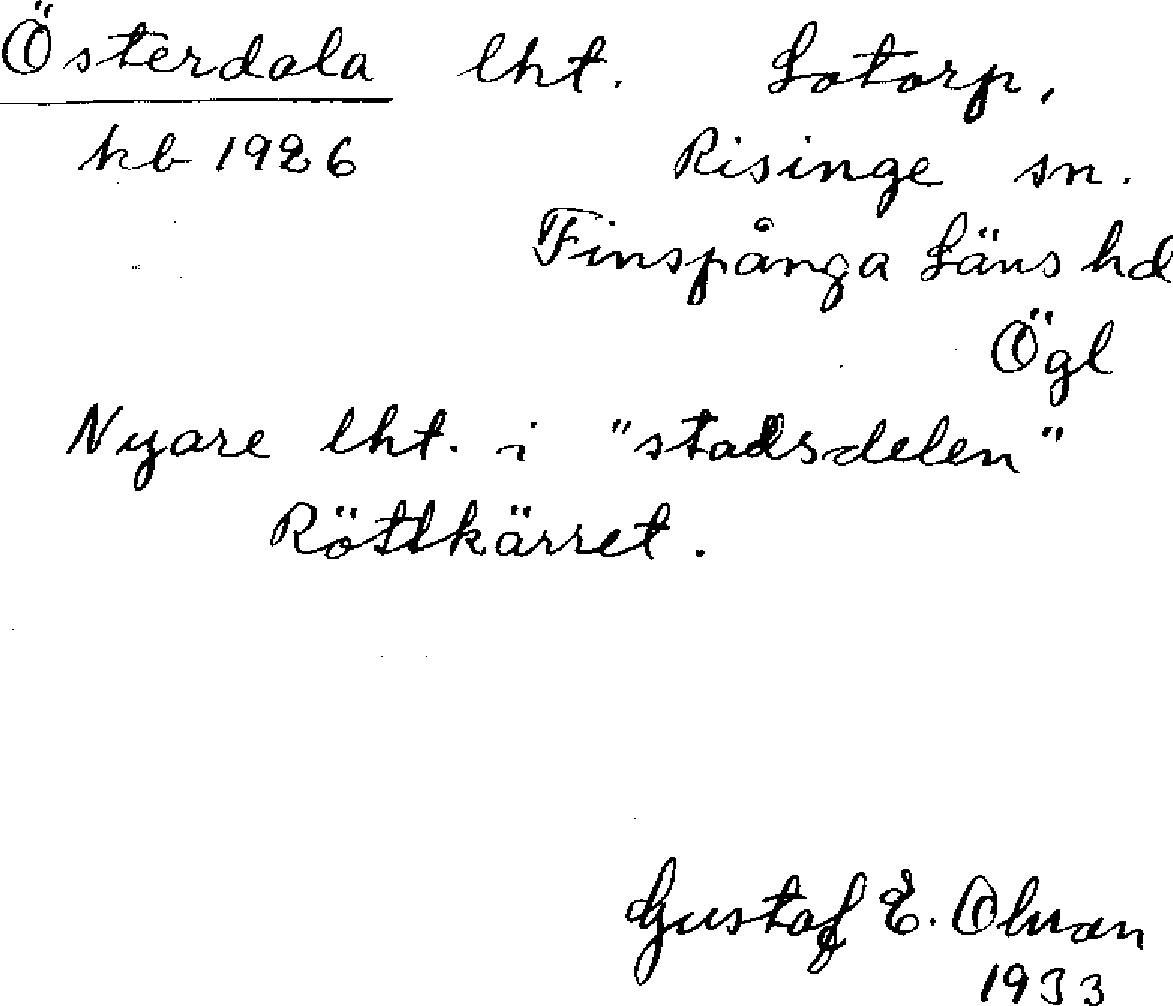 Österdala lht. Lotorp,
kb 1926 Risinge sn.
Finspånga Läns hd
Ögl
Nyare lht. i "stadsdelen"
Röttkärret.
Gustaf E. Olman
1933